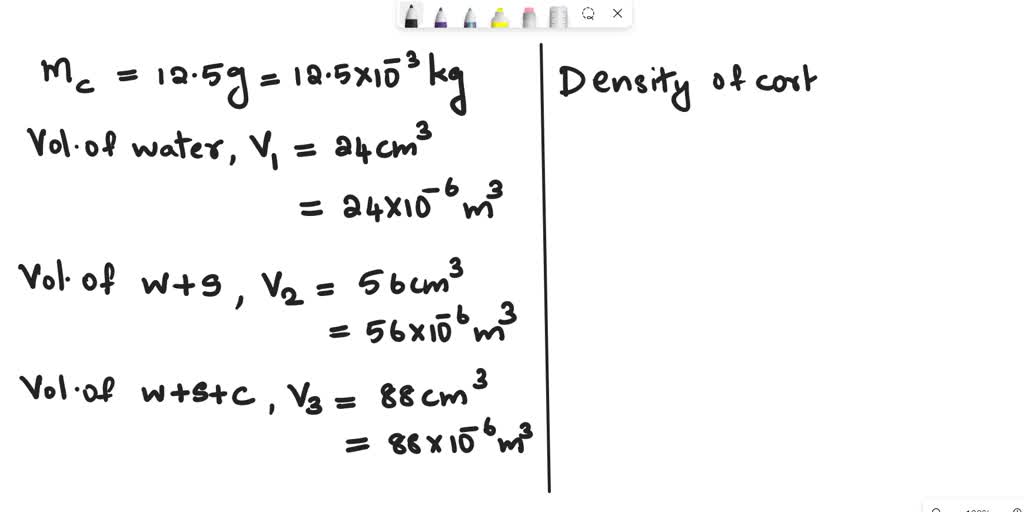 mc = 12.5g = 12.5×10⁻³ kg
Vol. of water, V₁ = 24 cm³
= 24×10⁻⁶ m³
Vol. of w+s, V₂ = 56 cm³
= 56×10⁻⁶ m³
Vol. of w+s+c, V₃ = 88 cm³
= 88×10⁻⁶ m³
Density of cort